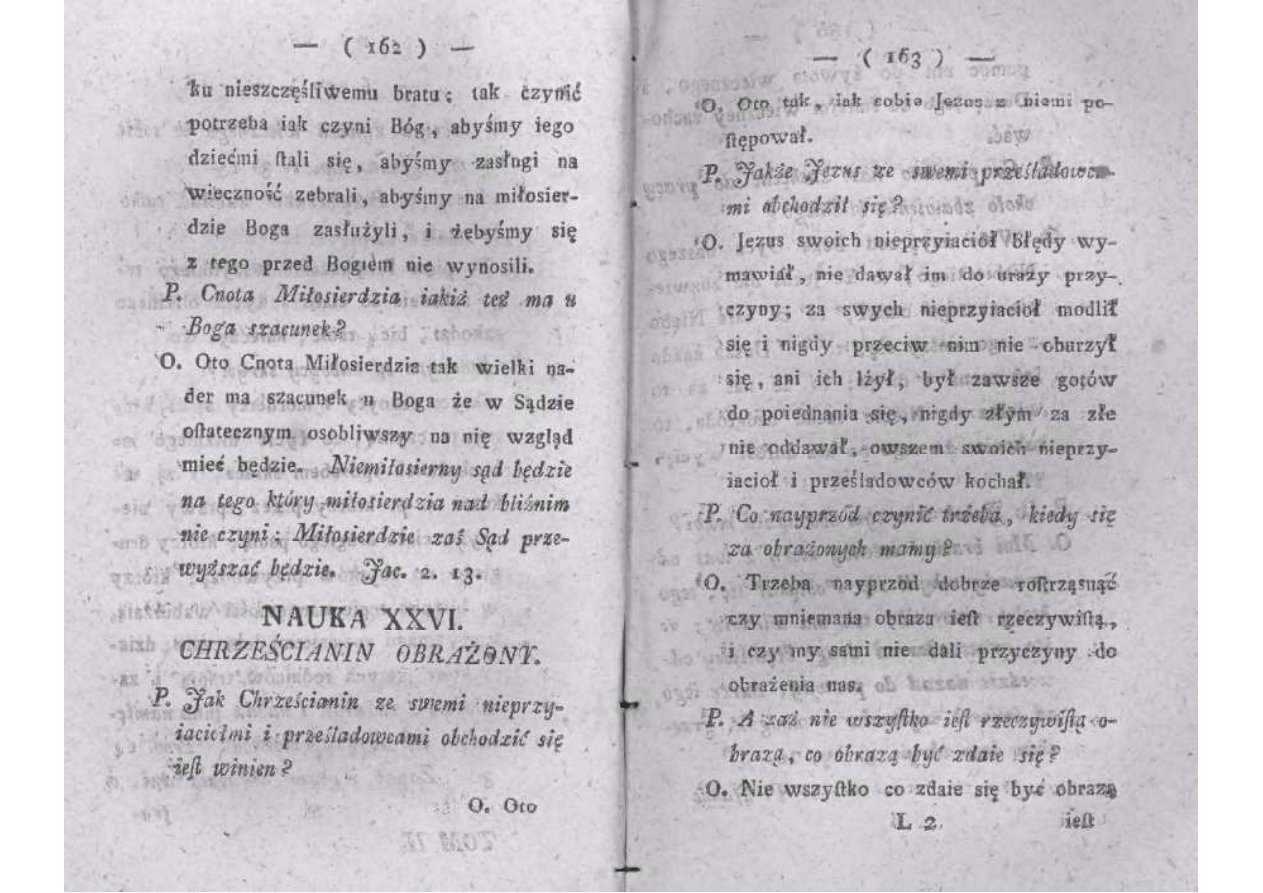 — ( 162 ) —
ku nieszczęśliwemu bratu: tak czynić
potrzeba iak czyni Bóg, abyśmy iego
dziećmi ſtali się, abyśmy zasługi na
wieczność zebrali, abyśmy na miłosier-
dzie Boga zasłużyli, i żebyśmy się
z tego przed Bogiem nie wynosili.
P. Cnota Miłosierdzia iakiż też ma u
Boga szacunek?
O. Oto Cnota Miłosierdzia tak wielki na-
der ma szacunek u Boga że w Sądzie
oſtatecznym osobliwszy na nię wzgląd
mieć będzie. Niemiłosierny sąd będzie
na tego który miłosierdzia nad bliźnim
nie czyni: Miłosierdzie zaś Sąd prze-
wyższać będzie. Jac. 2. 13.
NAUKA XXVI.
CHRZEŚCIANIN OBRAŻONY.
P. Jak Chrześcianin ze swemi nieprzy-
iaciołmi i prześladowcami obchodzić się
ieſt winien?
O. Oto
— ( 163 ) —
O. Oto tak, iak sobie Jezus z niemi po-
ſtępował.
P. Jakże Jezus ze swemi prześladowca-
mi obchodził się?
O. Jezus swoich nieprzyiaciół błędy wy-
mawiał, nie dawał im do urazy przy-
czyny; za swych nieprzyiacioł modlił
się i nigdy przeciw nim nie oburzył
się, ani ich lżył, był zawsze gotów
do poiednania się, nigdy złym za złe
nie oddawał, owszem swoich nieprzy-
iacioł i prześladowców kochał.
P. Co nayprzód czynić trzeba, kiedy się
za obrażonych mamy?
O. Trzeba nayprzód dobrze roſtrząsnąć
czy mniemana obraza ieſt rzeczywiſtą,
i czy my sami nie dali przyczyny do
obrażenia nas.
P. A zaż nie wszyſtko ieſt rzeczywiſtą o-
brazą, co obrazą być zdaie się?
O. Nie wszyſtko co zdaie się być obrazą
L 2 ieſt